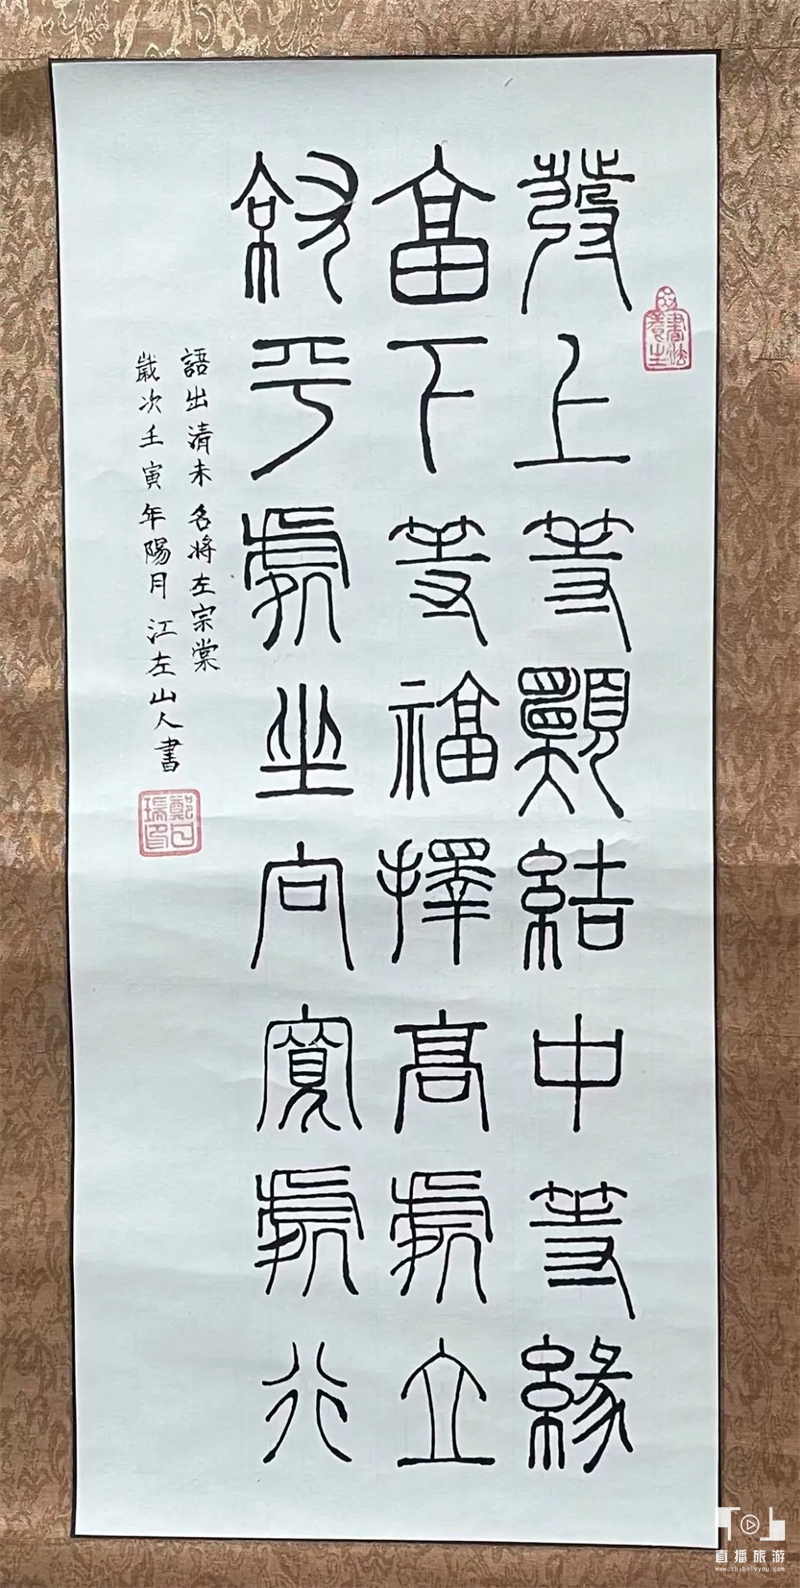 發上等願結中等緣
享下等福擇高處立
平處坐向寬處行
語出清末名將左宗棠
歲次壬寅年陽月江左山人書
書法養生
直播旅游
www.zhibolvyou.com